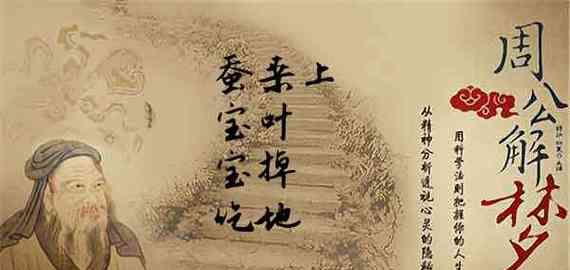 周公解梦
用科学法则把握你的人生
从精神分析透视心灵的隐
上
桑叶掉地
蚕宝宝吃